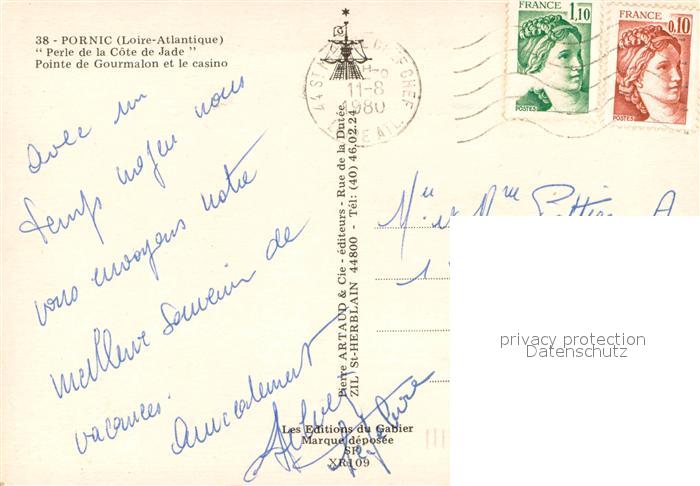 38 - PORNIC (Loire-Atlantique)
" Perle de la Côte de Jade "
Pointe de Gourmalon et le casino
FRANCE
1,10
POSTES
FRANCE
0,10
POSTES
11-8
1980
avec un
temps moyen nous
vous envoyons notre
meilleur souvenir de
vacances.
Amicalement
Mr et Mme
Pierre ARTAUD & Cie - éditeurs - Rue de la Dutée
ZIL St-HERBLAIN 44800 - Tél: (40) 46.02.24
Les Editions du Gabier
Marque déposée
XR109
privacy protection
Datenschutz